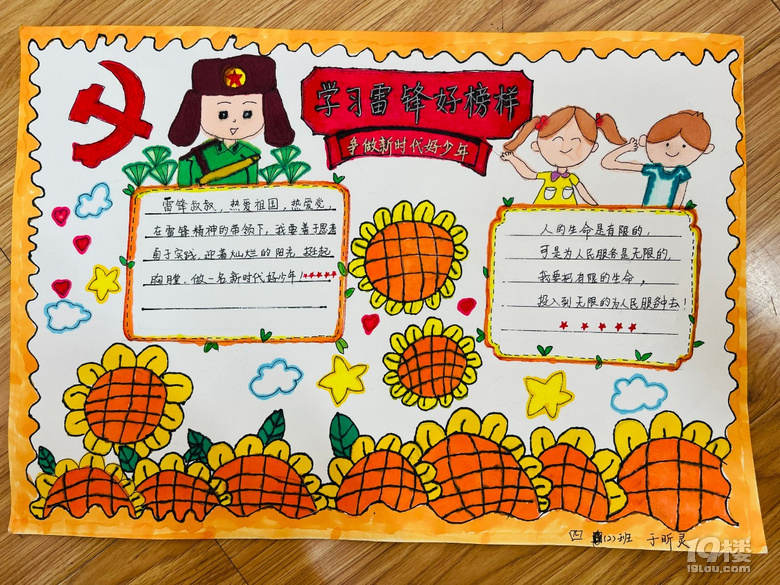 学习雷锋好榜样
争做新时代好少年
雷锋叔叔，热爱祖国，热爱党，
在雷锋精神的带领下，我要善于思考
勇于实践，迎着灿烂的阳光，挺起
胸膛，做一名新时代好少年！
人的生命是有限的，
可是为人民服务是无限的，
我要把有限的生命，
投入到无限的为人民服务中去！
四 (2)班 于昕灵
19楼
19lou.com